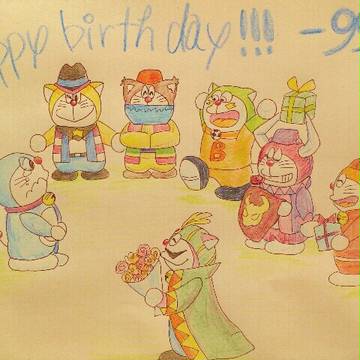 appy birth day!!! -9
B